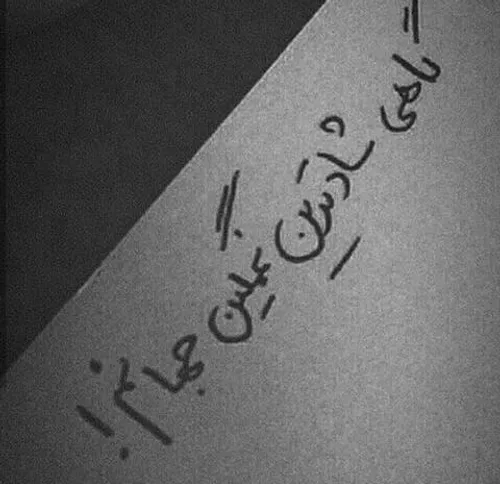 گاهی شادترین غمگین جهانم!